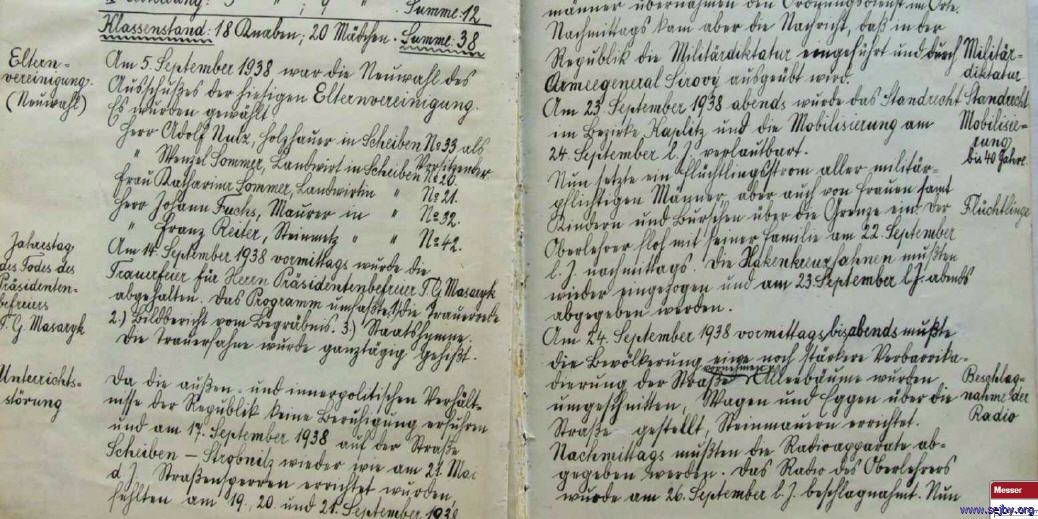 Summe: 12
Klassenstand: 18 Knaben; 20 Mädchen. Summe: 38
Eltern-
vereinigung.
(Neuwahl)
Am 5. September 1938 war die Neuwahl des
Ausschußes der hiesigen Elternvereinigung.
Es wurden gewählt:
Herr Adolf Nutz, Holzhauer in Scheiben No 33 als
Vorsitzender
" Wenzel Sommer, Landwirt in Scheiben No 20.
Frau Katharina Sommer, Landwirtin " No 21.
Herr Johann Fuchs, Maurer in " No 32.
" Franz Reiter, Steinmetz " " No 42.
Jahrestag
des Todes des
Präsidenten-
befreiers
T. G. Masaryk
Am 14. September 1938 vormittags wurde die
Trauerfeier für Herrn Präsidentenbefreier T. G. Masaryk
abgehalten. Das Programm umfaßte: 1) die Trauerrede
2.) Bildbericht vom Begräbnis. 3.) Staatshymne.
Die Trauerfahne wurde ganztägig gehißt.
Unterrichts-
störung
Da die außen- und innerpolitischen Verhält-
nisse der Republik keine Beruhigung erfuhren
und am 17. September 1938 auf der Straße
Scheiben – Strobnitz wieder wie am 21. Mai
d. J. Straßensperren errichtet wurden,
fehlten am 19., 20. und 21. September 1938
männer übernahmen den Ordnungsdienst im Orte.
Nachmittags kam aber die Nachricht, daß in der
Republik die Militärdiktatur eingeführt und durch
Armeegeneral Sirový ausgeübt wird.
Militär-
diktatur
Am 23. September 1938 abends wurde das Standrecht
im Bezirke Kaplitz und die Mobilisierung am
24. September l. J. verlautbart.
Standrecht
Mobilisie-
rung
bis 40 Jahre.
Nun setzte ein Flüchtlingsstrom aller militär-
pflichtigen Männer, aber auch von Frauen samt
Kindern und Burschen über die Grenze ein. Der
Oberlehrer floh mit seiner Familie am 22. September
l. J. nachmittags. Die Hakenkreuzfahnen mußten
wieder eingezogen und am 23. September l. J. abends
abgegeben werden.
Flüchtlinge
Am 24. September 1938 vormittags bis abends mußte
die Bevölkerung eine noch stärkere Verbarrika-
dierung der Straße vornehmen. Alleebäume wurden
umgeschnitten, Wagen und Eggen über die
Straße gestellt, Steinmauern errichtet.
Nachmittags mußten die Radioapparate ab-
gegeben werden. Das Radio des Oberlehrers
wurde am 26. September l. J. beschlagnahmt. Nun
Beschlag-
nahme der
Radio
Messer
www.sejby.org